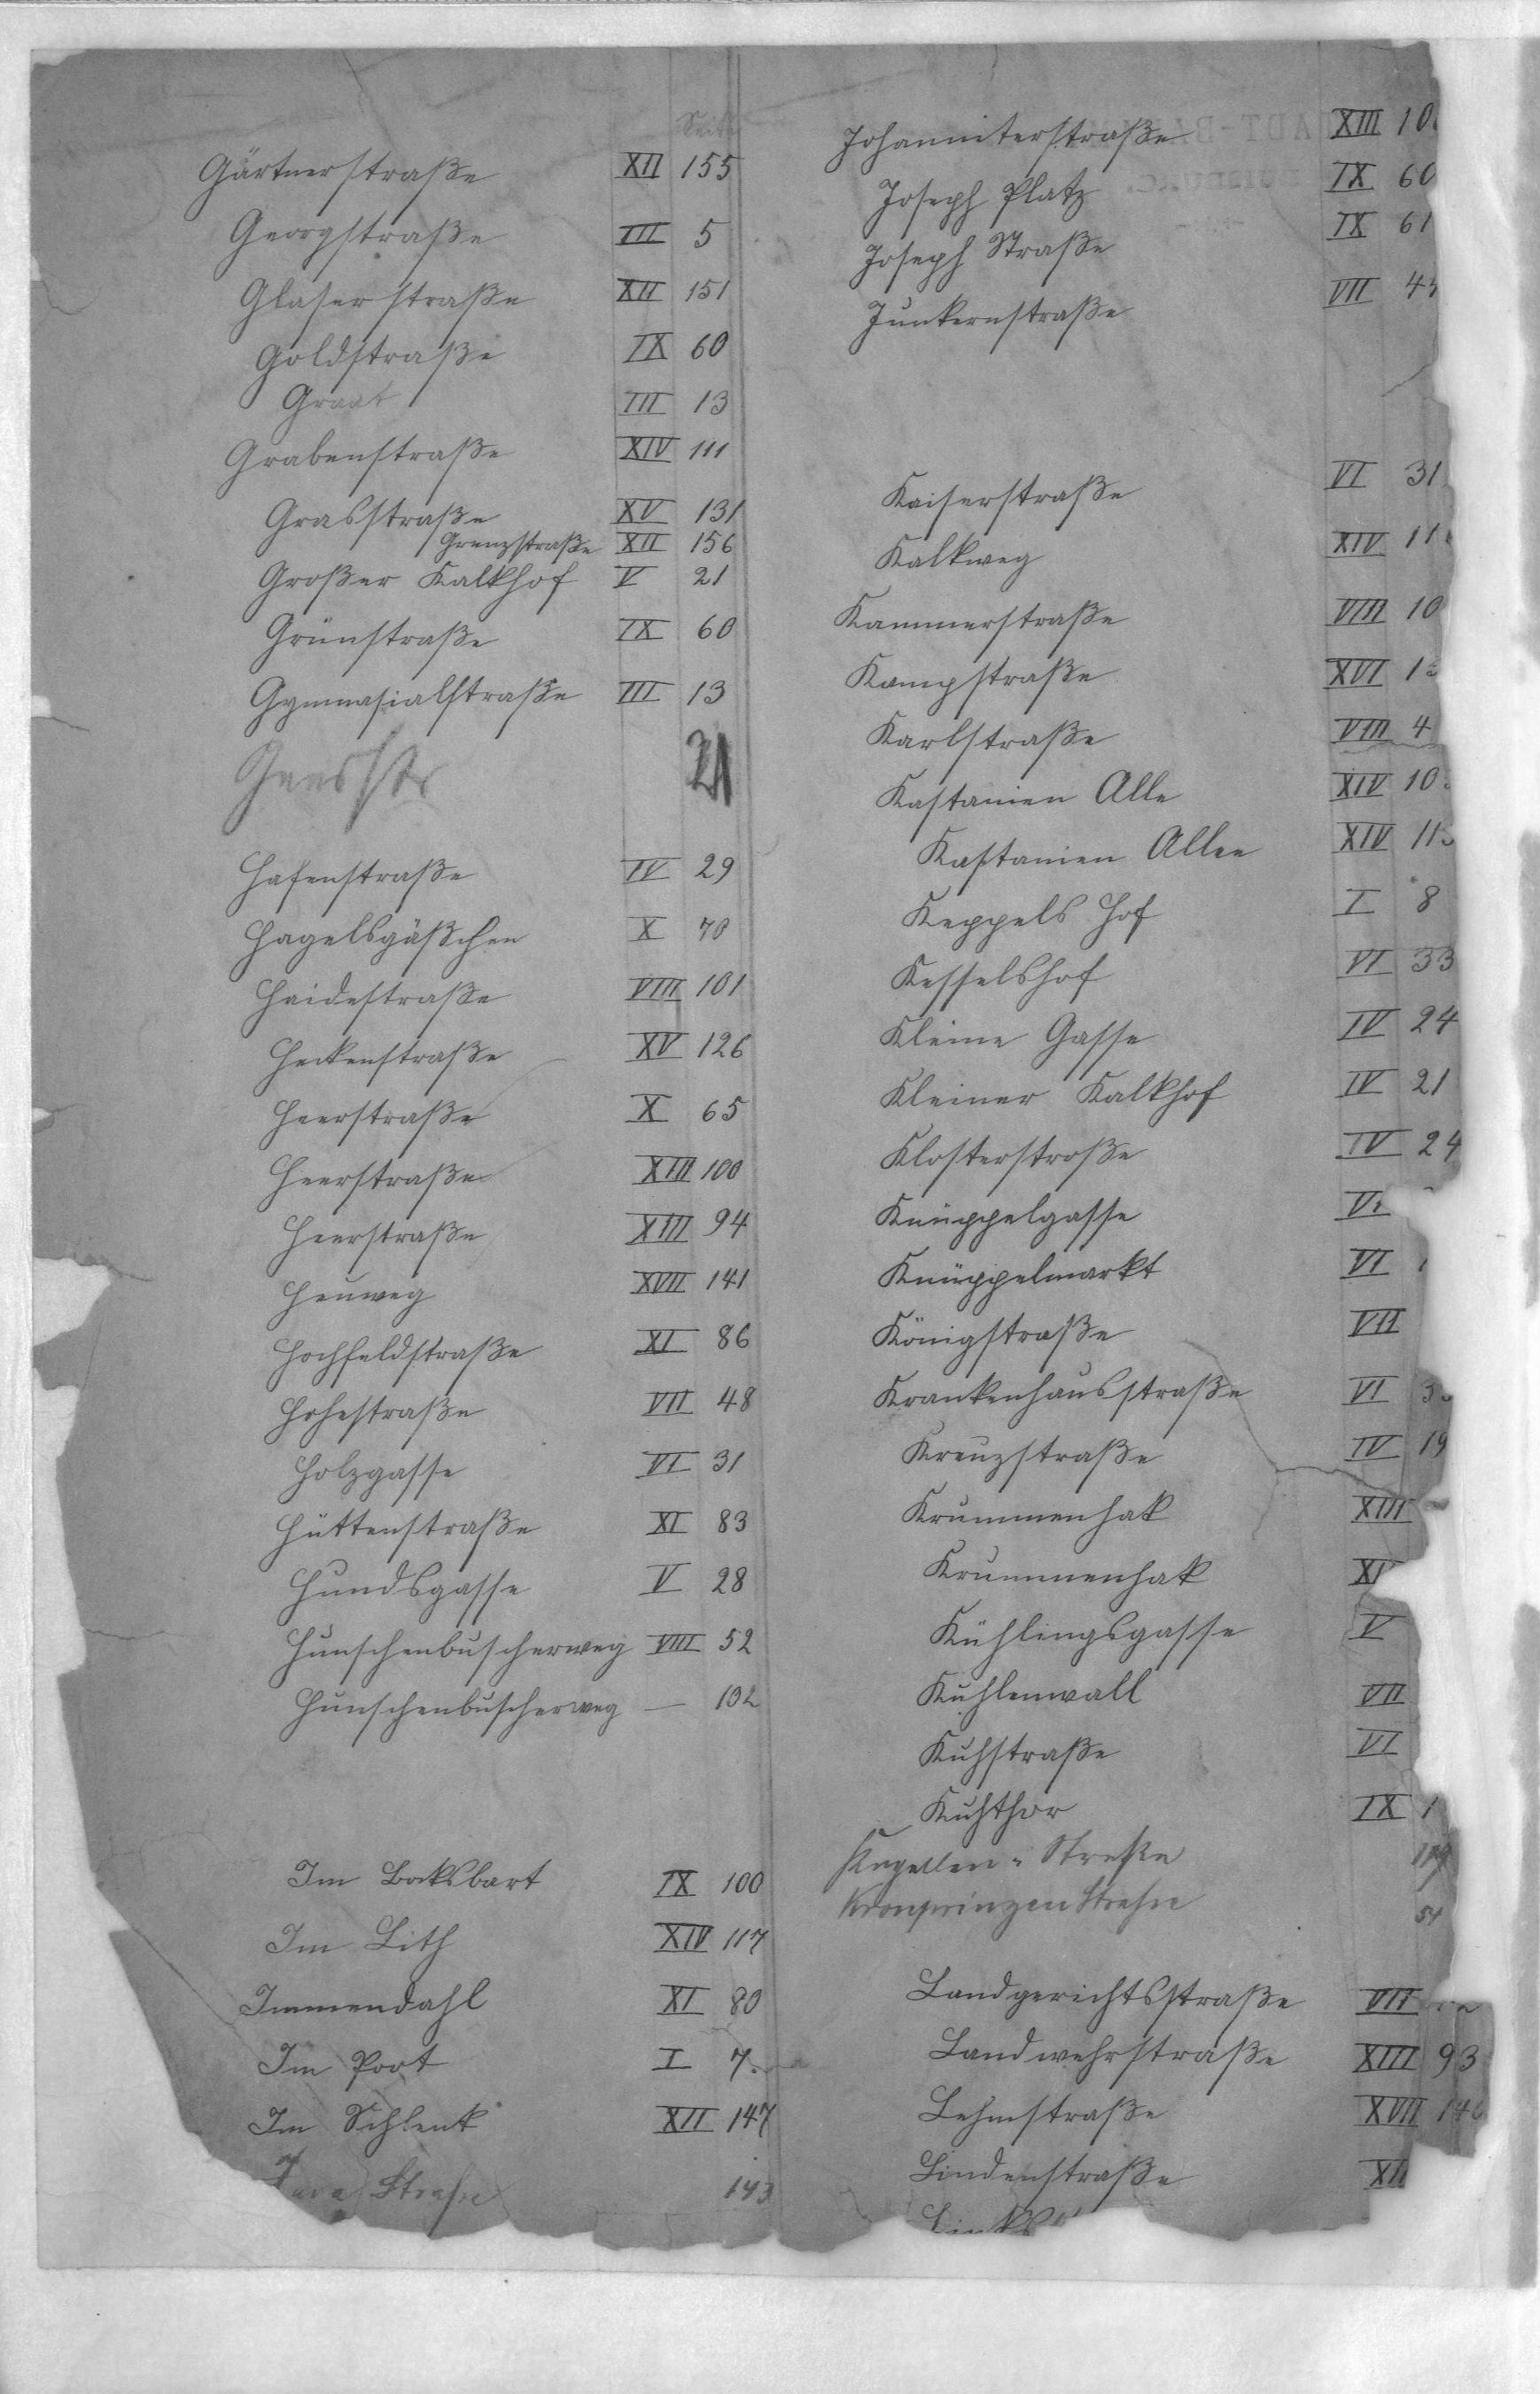 Seite
Gärtnerstraße XII 155
Georgstraße III 5
Glaserstraße XII 151
Goldstraße IX 60
Graat III 13
Grabenstraße XIV 111
Grasstraße XV 131
Grenzstraße XII 156
Großer Kalkhof V 21
Grünstraße IX 60
Gymnasialstraße III 13
21
Hafenstraße IV 29
Hagelsgäßchen X 70
Haidestraße VIII 101
Heckenstraße XV 126
Heerstraße X 65
Heerstraße XIII 100
Heerstraße XIII 94
Heuweg XVII 141
Hochfeldstraße XI 86
Hohestraße VII 48
Holzgasse VI 31
Hüttenstraße XI 83
Hundsgasse V 28
Hunschenbuscherweg VIII 52
Hunschenbuscherweg — 102
Im Bocksbart IX 100
Im Lith XIV 117
Immendahl XI 80
Im Poot I 7
Im Schlenk XII 147
Straße 143
Johanniterstraße XIII 10
Joseph Platz IX 60
Joseph Straße IX 61
Junkernstraße VII 43
Kaiserstraße VI 31
Kalkweg XIV 11
Kammerstraße VIII 10
Kampstraße XVI 13
Karlstraße VIII 4
Kastanien Alle XIV 10
Kastanien Allee XIV 113
Keppels Hof I 8
Kesselshof VI 33
Kleine Gasse IV 24
Kleiner Kalkhof IV 21
Klosterstroße IV 24
Knüppelgasse V
Knüppelmarkt VI
Königstraße VII
Krankenhausstraße VI 3
Kreuzstraße IV 19
Krummenhak XIII
Krummenhak XI
Kühlingsgasse V
Kuhlenwall VII
Kuhstraße VI
Kuhthor IX 1
Kapellen-Straße 119
Kronprinzen Straße 54
Landgerichtsstraße VII
Landwehrstraße XIII 93
Lehmstraße XVII 146
Lindenstraße XII